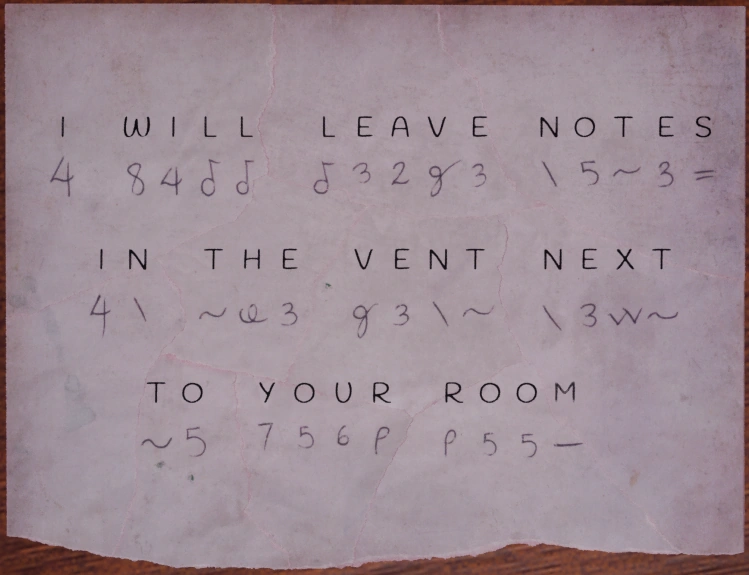 I WILL LEAVE NOTES
4 84δδ δ32g3 \5~3=
IN THE VENT NEXT
4\ ~ҩ3 g3\~ \3w~
TO YOUR ROOM
~5 756ρ ρ55—